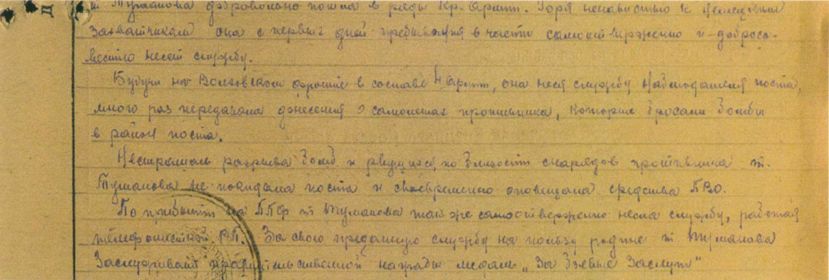 т. Туманова добровольно пошла в ряды Кр. Армии. Горя ненавистью к немецким
захватчикам она с первых дней пребывания в части самоотверженно и добросо-
вестно несет службу.
Будучи на Волховском фронте в составе Армии, она неся службу наблюдателя поста,
много раз передавала донесения о самолетах противника, которые бросали бомбы
в район поста.
Несмотря на разрывы бомб и рвущихся по близости снарядов противника т.
Туманова не покидала поста и своевременно оповещала средства ПВО.
По прибытии на т. Туманова также самоотверженно несла службу, работая
телефонисткой РП. За свою преданную службу на пользу родине т. Туманова
заслуживает правительственной награды медаль „За Боевые Заслуги"